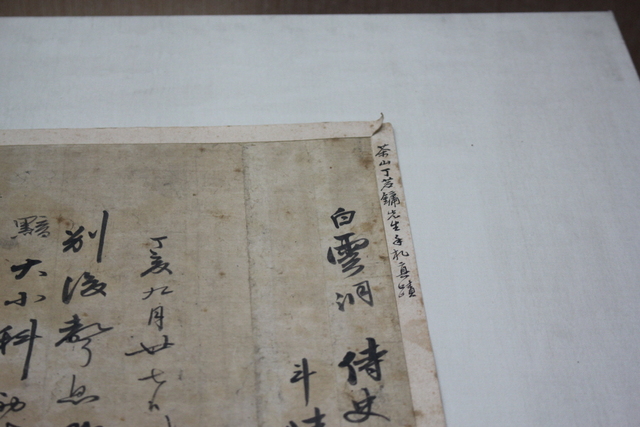 茶山丁若鏞先生手札真蹟
白雲洞 侍史
斗
丁亥九月廿七日
別後聲息
黯
大小科